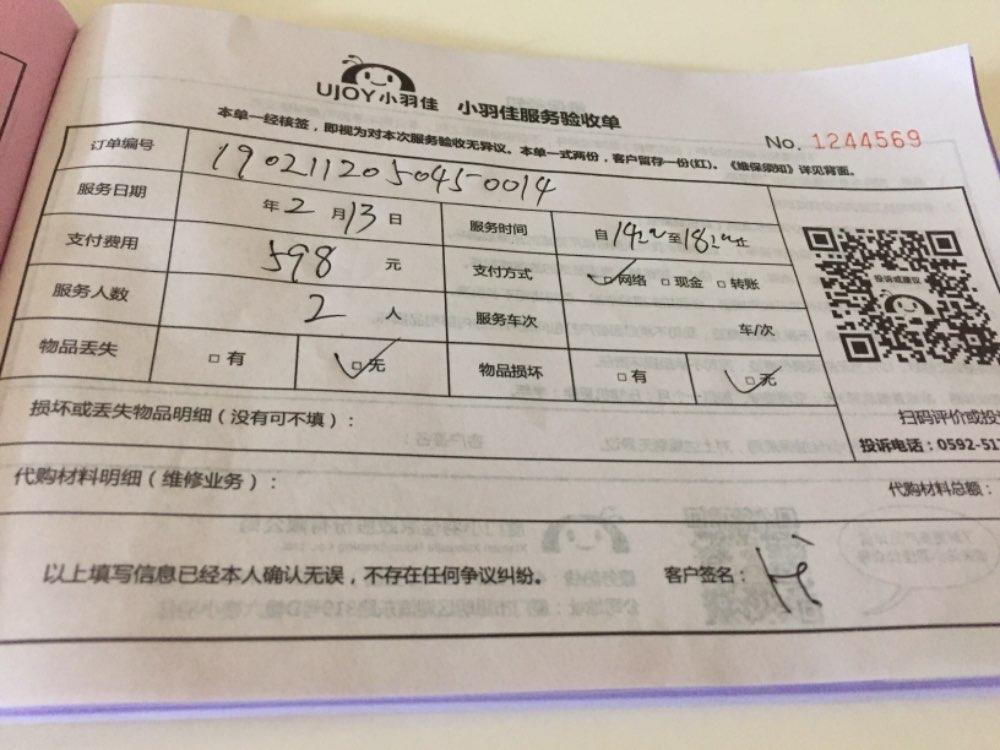 UJOY小羽佳 小羽佳服务验收单
本单一经核签，即视为对本次服务验收无异议。本单一式两份，客户留存一份(红)。《维保须知》详见背面。
No. 1244569
订单编号 1902112050450014
服务日期 年2月13日 服务时间 自1420至1820止
支付费用 598 元 支付方式 □网络 □现金 □转账
服务人数 2 人 服务车次 车/次
物品丢失 □有 □无 物品损坏 □有 □无
投诉或建议
损坏或丢失物品明细（没有可不填）：
扫码评价或投
投诉电话：0592-51
代购材料明细（维修业务）：
代购材料总额：
以上填写信息已经本人确认无误，不存在任何争议纠纷。 客户签名：